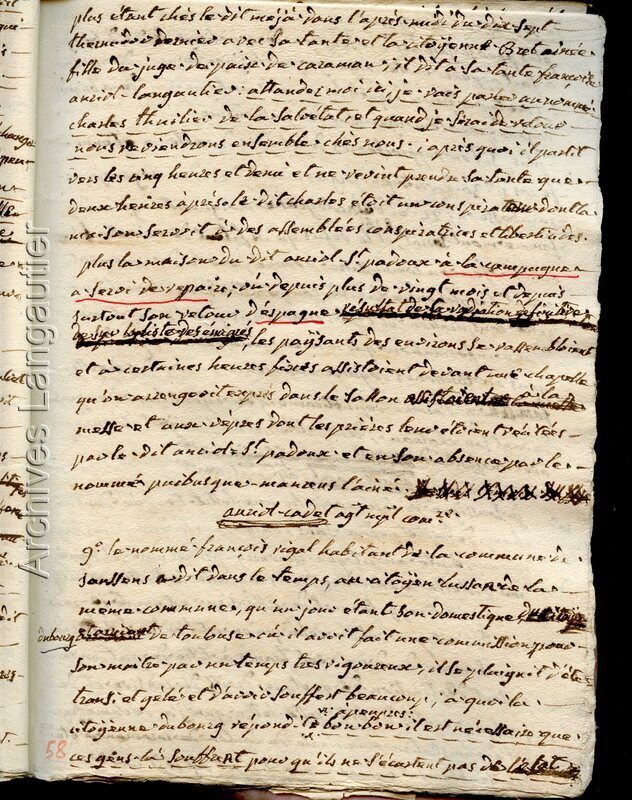 plus étant chès le dit mejà dans l'après midi du dix sept
thermidor dernier avec sa tante et la citoyenne Bretainée
fille du juge de paix de caraman; il dit à sa tante françoise
auriol-langautier: attandez moi ici, je vais parler au nommé
charles thuilier de la salvetat, et quand je serai de retour
nous reviendrons ensemble chès nous; après quoi il partit
vers les cinq heures et demi et ne revint prendre sa tante que
deux heures après: le dit charles etoit un conspirateur dont la
maison servoit à des assemblées conspiratices et liberticides.
plus la maison du dit auriol-St. padoux à la campagne
a servi de repaire, où depuis plus de vingt mois et depuis
surtout son retour d'espagne
les paysants des environs se rassembloient
et à certaines heures fixées assistoient devant une chapelle
qu'on arrengeoit exprès dans le sallon à la
messe et aux vépres dont les prières leur etoient récitées
par le dit auriol-St. padoux et en son absence par le
nommé paribusque-marcous l'ainé.
auriol-cadet agt. npl. con.re
9.o le nommé françois rigal habitant de la commune de
saussens a dit dans le temps, au citoyen lussan de la
même commune, qu'un jour étant son domestique
dubourg de toulouse où il avoit fait une commission pour
son maitre par un temps très rigoureux, il se plaignit d'être
transi et gélé et d'avoir souffert beaucoup; à quoi la
citoyenne dubourg répond: bon bon il est nécessaire que
ces gens-là souffrent pour qu'ils ne s'écartent pas de
58
Archives Langautier